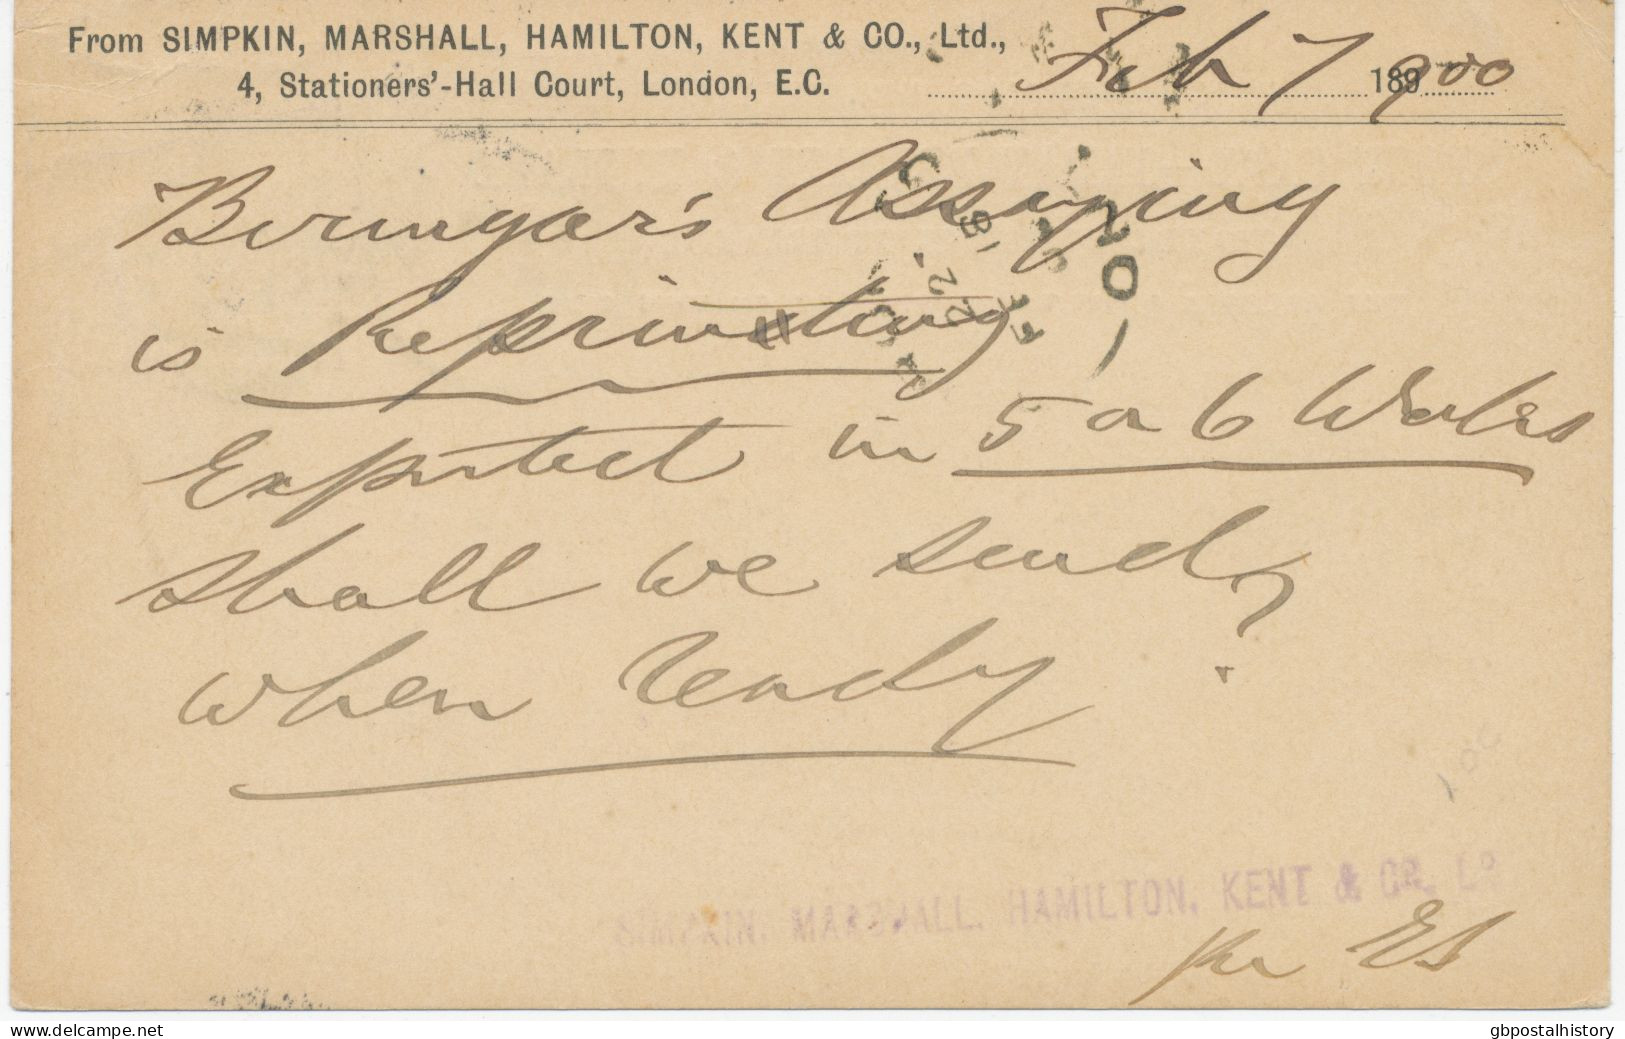 From SIMPKIN, MARSHALL, HAMILTON, KENT & CO., Ltd.,
4, Stationers'-Hall Court, London, E.C.
Feb 7 1899 00
Beringer's Assaying
is Reprinting
Expected in 5 or 6 Weeks
Shall we send
when ready ?
SIMPKIN, MARSHALL, HAMILTON, KENT & CO. LD
per ES
delcampe.net
gbpostalhistory